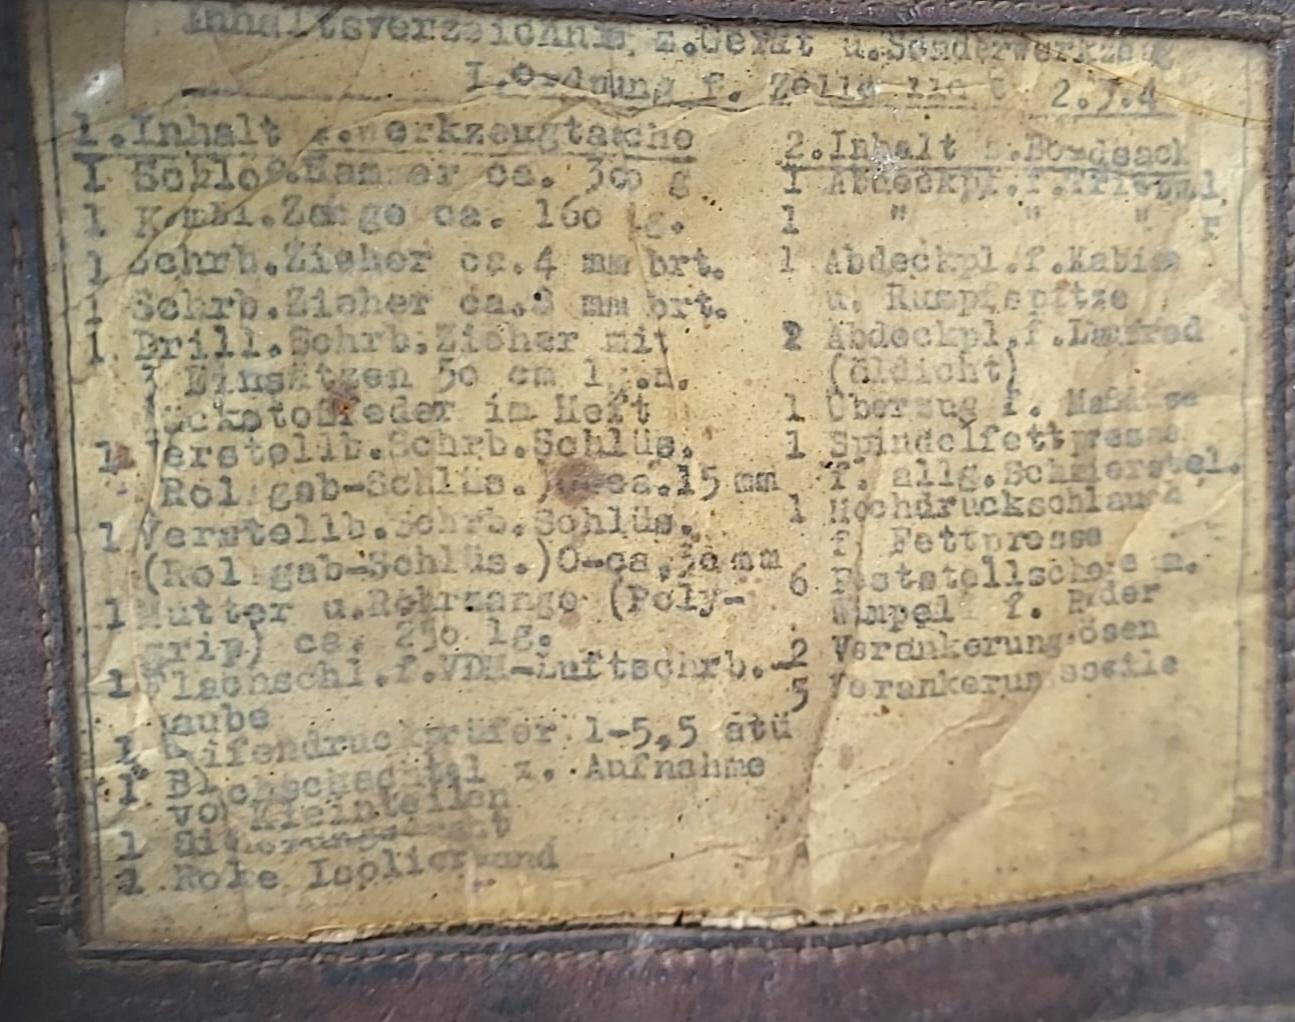 Inhaltsverzeichnis z.Gerät u.Sonderwerkzeug
I.Ordnung f. Zelle 110 2.3.4
1.Inhalt z.Werkzeugtasche
1 Schloß.Hammer ca. 300 g
1 Kombi.Zange ca. 160 lg.
1 Schrb.Zieher ca.4 mm brt.
1 Schrb.Zieher ca.8 mm brt.
1 Drill.Schrb.Zieher mit
3 Einsätzen 50 cm lg.m.
Rückstoßfeder im Heft
1 Verstellb.Schrb.Schlüs.
(Rollgab-Schlüs.)0-ca.15 mm
1 Verstellb.Schrb.Schlüs.
(Rollgab-Schlüs.)0-ca.30 mm
1 Mutter u.Rohrzange (Poly-
grip) ca. 250 lg.
1 Flachschl.f.VDM-Luftschrb.-
haube
1 Reifendruckprüfer 1-5,5 atü
1 Blechschachtel z. Aufnahme
von Kleinteilen
1 Sicherungsdraht
1 Rolle Isolierband
2.Inhalt z.Bordsack
1 Abdeckpl.f.Triebw.l
1 " " " r
1 Abdeckpl.f.Kabine
u. Rumpfspitze
2 Abdeckpl.f.Laufrad
(öldicht)
1 Überzug f.
1 Spindelfettpresse
f. allg.Schmierstel.
1 Hochdruckschlauch
f. Fettpresse
6 Feststellschere m.
Wimpel f. Ruder
2 Verankerungsösen
5 Verankerungsseile